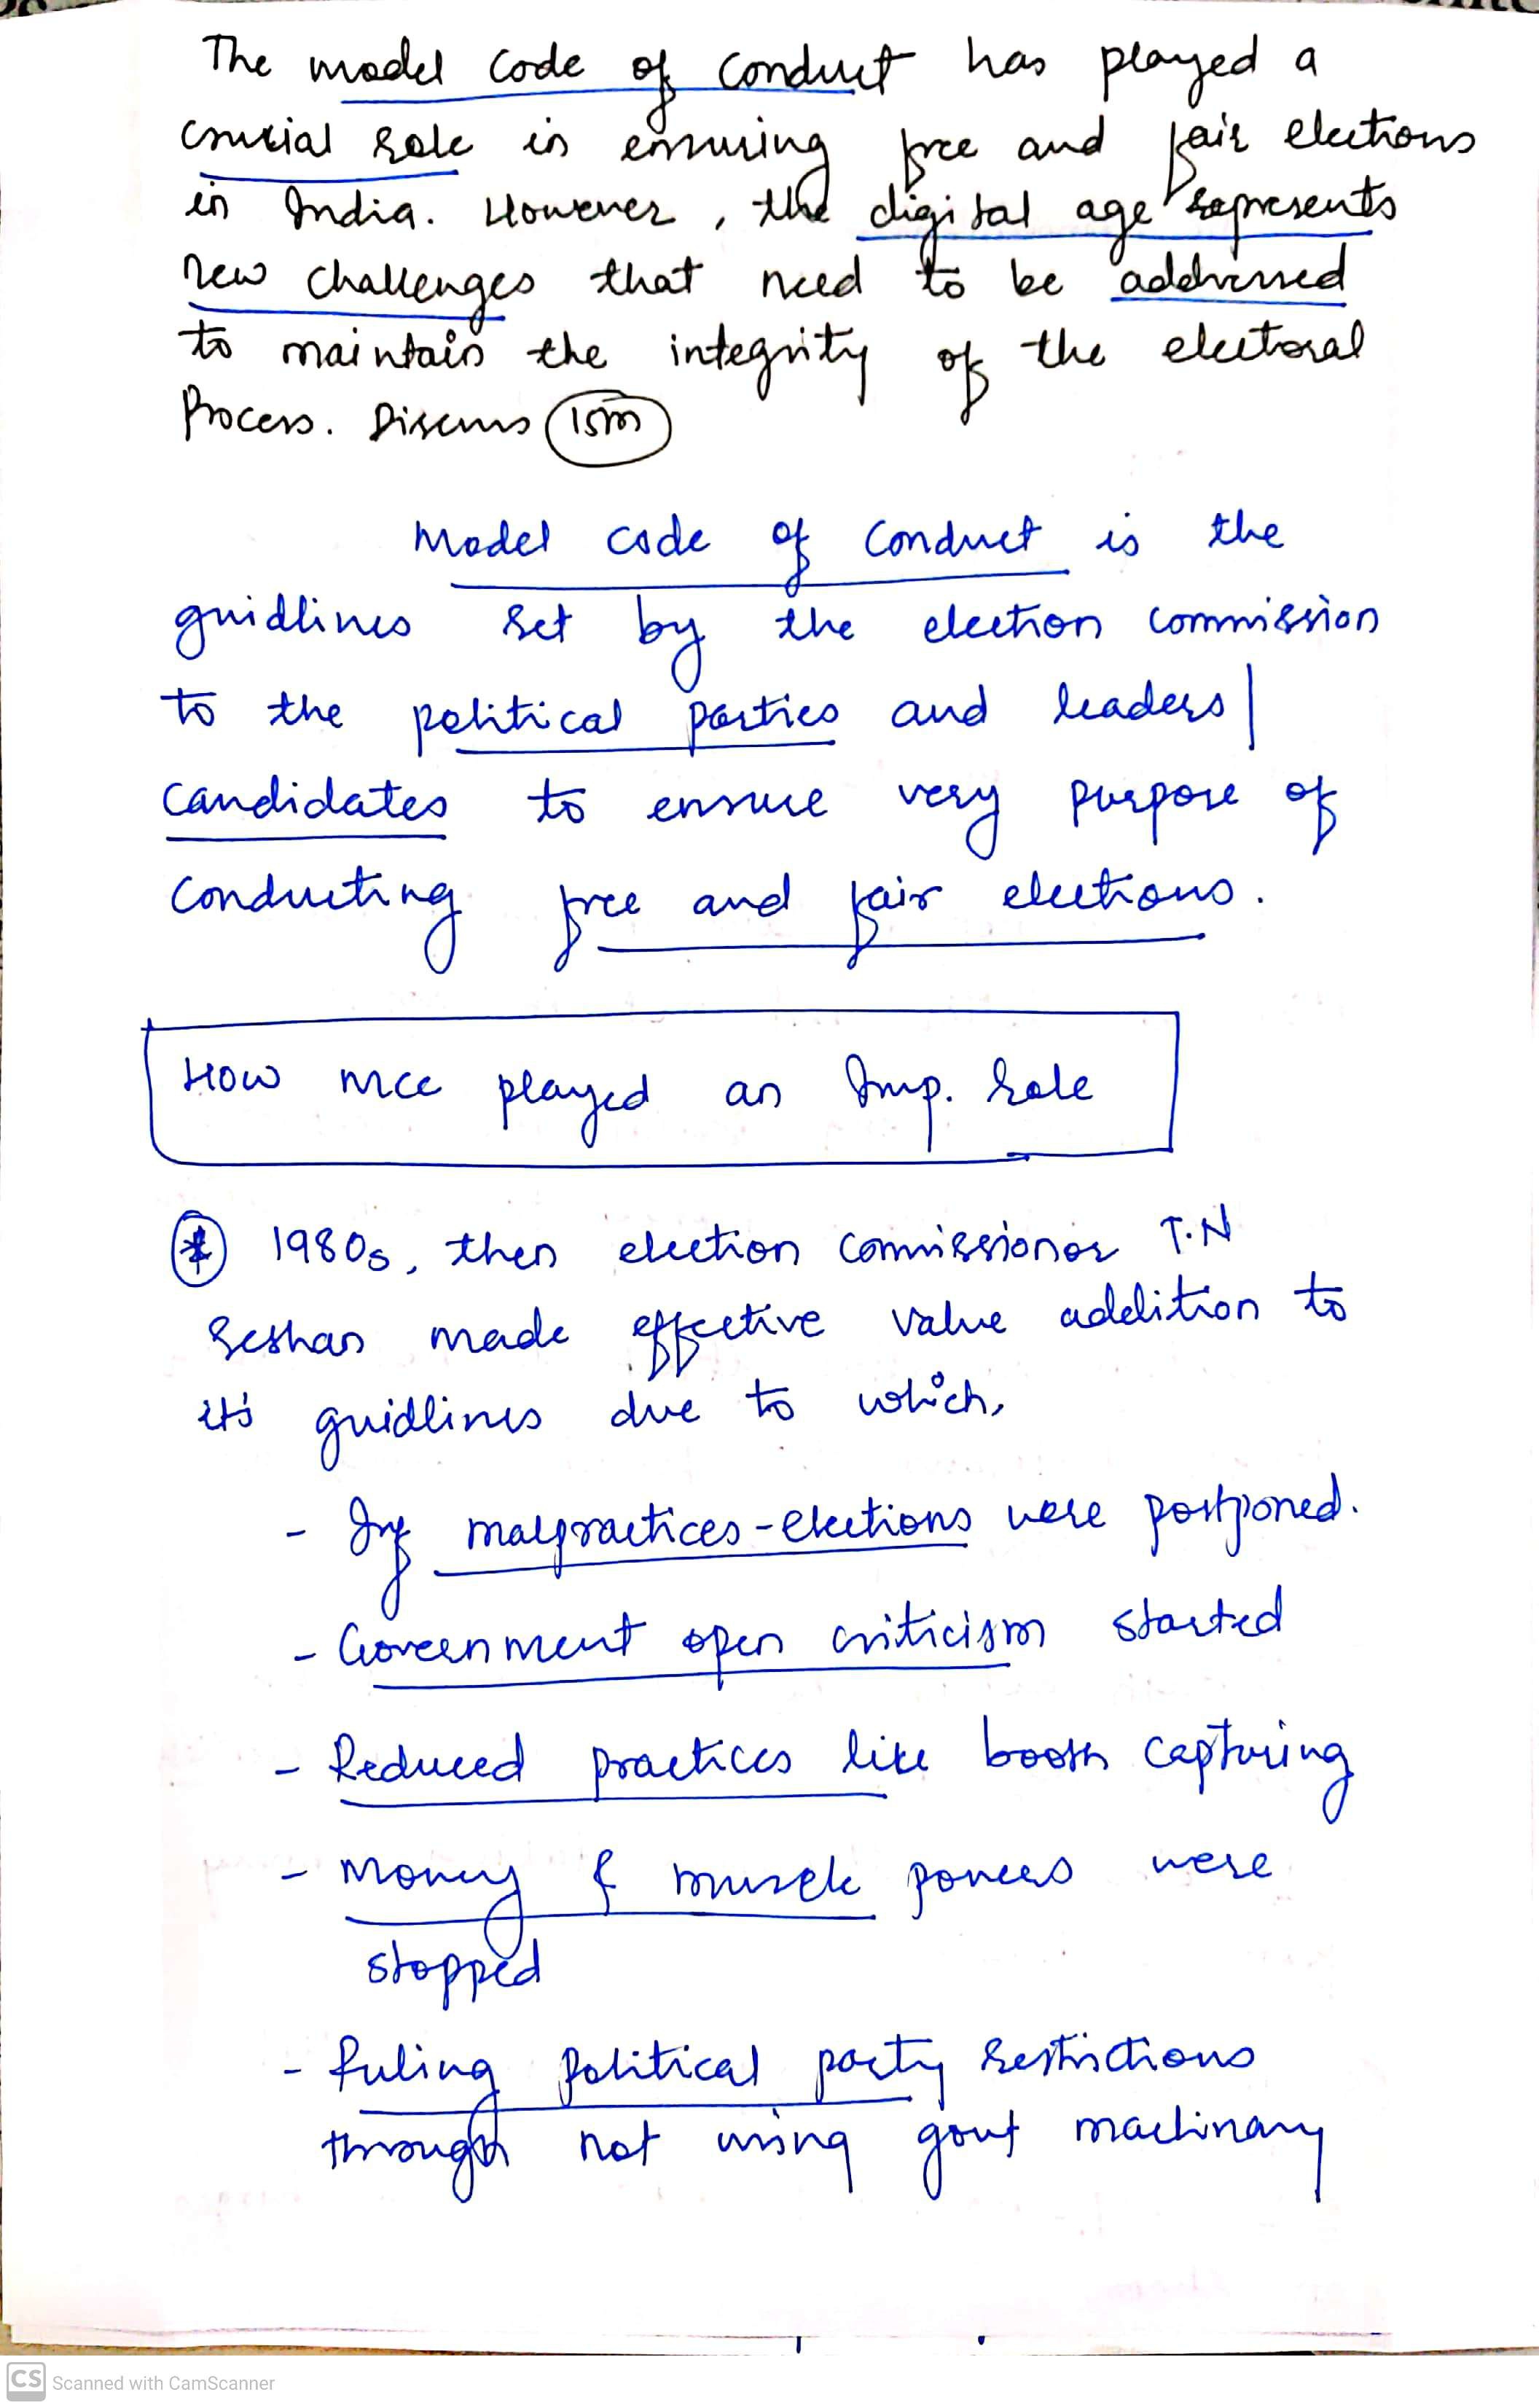 The model code of conduct has played a
crucial role in ensuring free and fair elections
in India. However, the digital age represents
new challenges that need to be addressed
to maintain the integrity of the electoral
Process. Discuss 15m
Model code of conduct is the
guidlines set by the election commission
to the political parties and leaders/
candidates to ensure very purpose of
conducting free and fair elections.
How MCC played an Imp. role
* 1980s, then election commissioner T.N
Seshan made effective value addition to
it's guidlines due to which,
- If malpractices-elections were postponed.
- Government open criticism started
- Reduced practices like booth capturing
- Money & muscle powers were
stopped
- Ruling political party restrictions
through not using govt machinary
CS Scanned with CamScanner